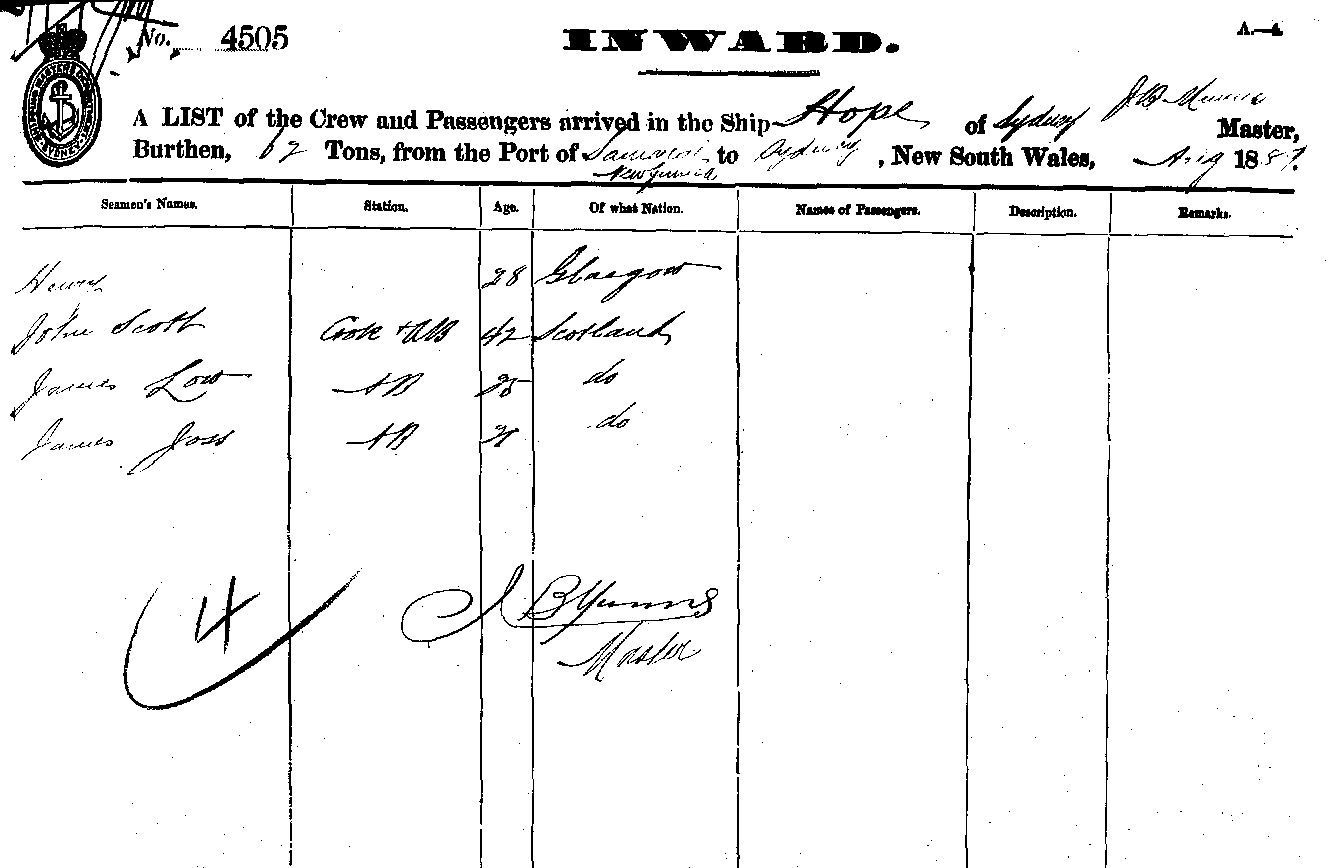 No. 4505
INWARD.
A.—4.
A LIST of the Crew and Passengers arrived in the Ship Hope of Sydney J B Master,
Burthen, 62 Tons, from the Port of to Sydney, New South Wales, Aug 1887.
New Guinea
Seamen's Names. Station. Age. Of what Nation. Names of Passengers. Description. Remarks.
Henry 28 Glasgow
John Scott Cook + AB 42 Scotland
James Low AB 25 do
James Joss AB do
4
J B
Master